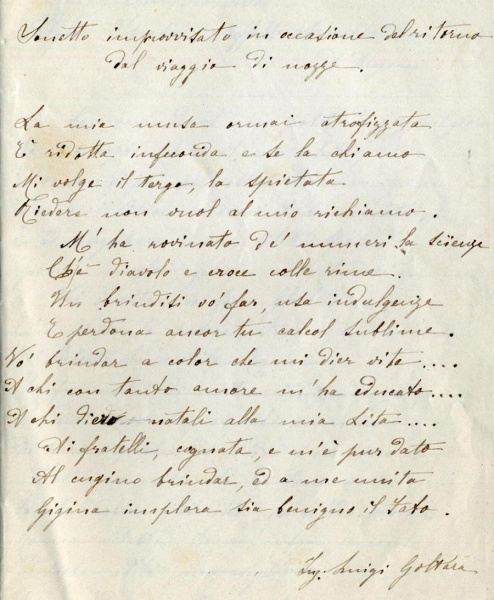 Sonetto improvvisato in occasione del ritorno
dal viaggio di nozze.
La mia musa ormai atrofizzata
È ridotta infeconda e se la chiamo
Mi volge il tergo, la spietata
Riedere non vuol al mio richiamo.
M'ha rovinato de' numeri la scienza
Ch'è diavolo e croce colle rime.
Un brindisi vo' far, usa indulgenza
E perdona ancor tu calcol sublime.
Vo' brindar a color che mi dier vita....
A chi con tanto amore m'ha educato....
A chi diero natali alla mia Lita....
Ai fratelli, cognata, e m'è pur dato
Al cugino brindar, ed a me unita
Gigina implora sia benigno il Fato.
Ing. Luigi Goltara